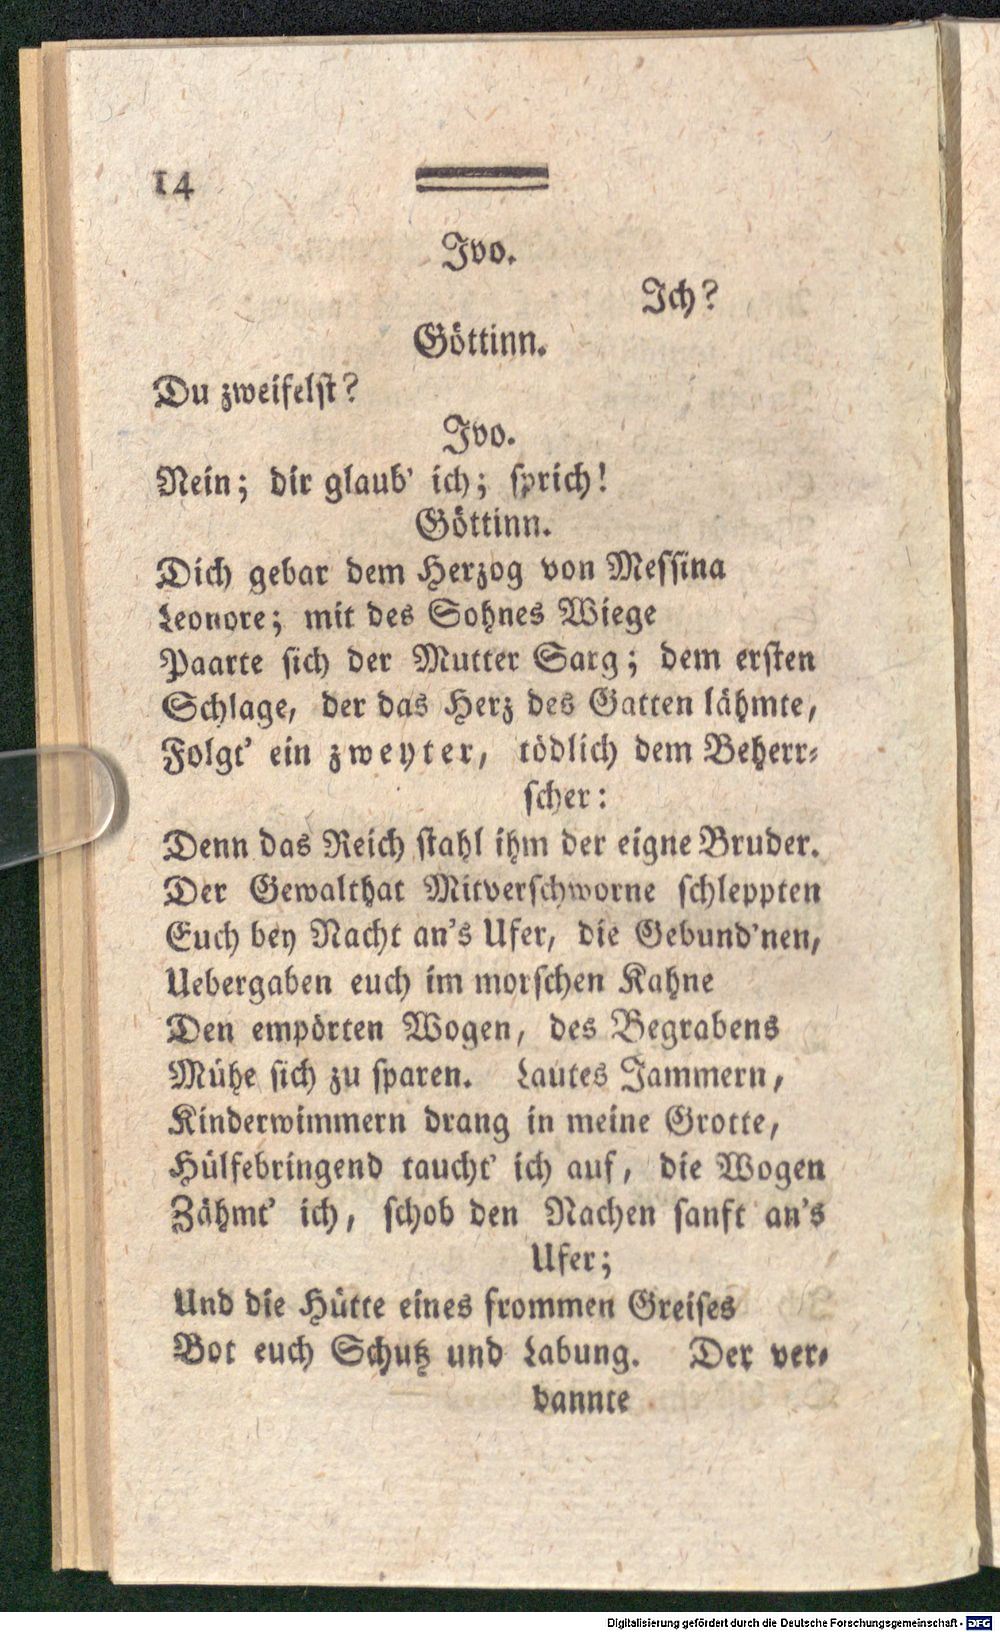 14
Ivo.
Ich?
Göttinn.
Du zweifelst?
Ivo.
Nein; dir glaub' ich; sprich!
Göttinn.
Dich gebar dem Herzog von Messina
Leonore; mit des Sohnes Wiege
Paarte sich der Mutter Sarg; dem ersten
Schlage, der das Herz des Gatten lähmte,
Folgt' ein zweyter, tödlich dem Beherr-
scher:
Denn das Reich stahl ihm der eigne Bruder.
Der Gewalthat Mitverschworne schleppten
Euch bey Nacht an's Ufer, die Gebund'nen,
Uebergaben euch im morschen Kahne
Den empörten Wogen, des Begrabens
Mühe sich zu sparen. Lautes Jammern,
Kinderwimmern drang in meine Grotte,
Hülfebringend taucht' ich auf, die Wogen
Zähmt' ich, schob den Nachen sanft an's
Ufer;
Und die Hütte eines frommen Greises
Bot euch Schutz und Labung. Der ver-
bannte
Digitalisierung gefördert durch die Deutsche Forschungsgemeinschaft - DFG